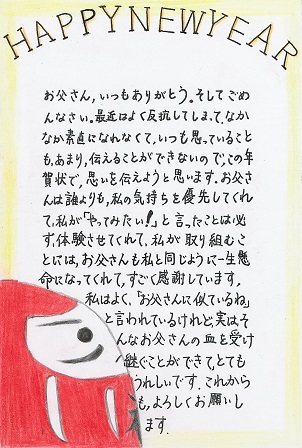 HAPPY NEW YEAR
お父さん,いつもありがとう。そしてごめ
んなさい。最近はよく反抗してしまって,なか
なか素直になれなくて,いつも思っていること
も,あまり,伝えることができないので,この年
賀状で,思いを伝えようと思います。お父さ
んは誰よりも,私の気持ちを優先してくれ
て,私が「やってみたい!」と言ったことは必
ず,体験させてくれて,私が取り組むこ
とには,お父さんも私と同じように一生懸
命になってくれて,すごく感謝しています。
私はよく,「お父さんに似ているね」
と言われているけれど,実はそ
んなお父さんの血を受け
継ぐことができて,とても
うれしいです。これから
も,よろしくお願いし
ます。